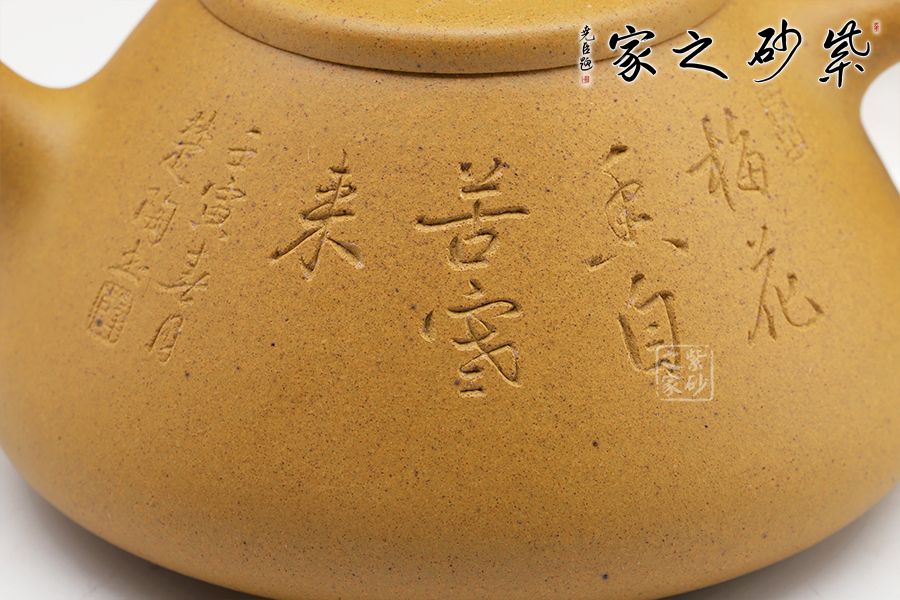 紫砂之家
尧臣题
梅花
香自
苦寒
来
壬寅春月
紫砂
之家